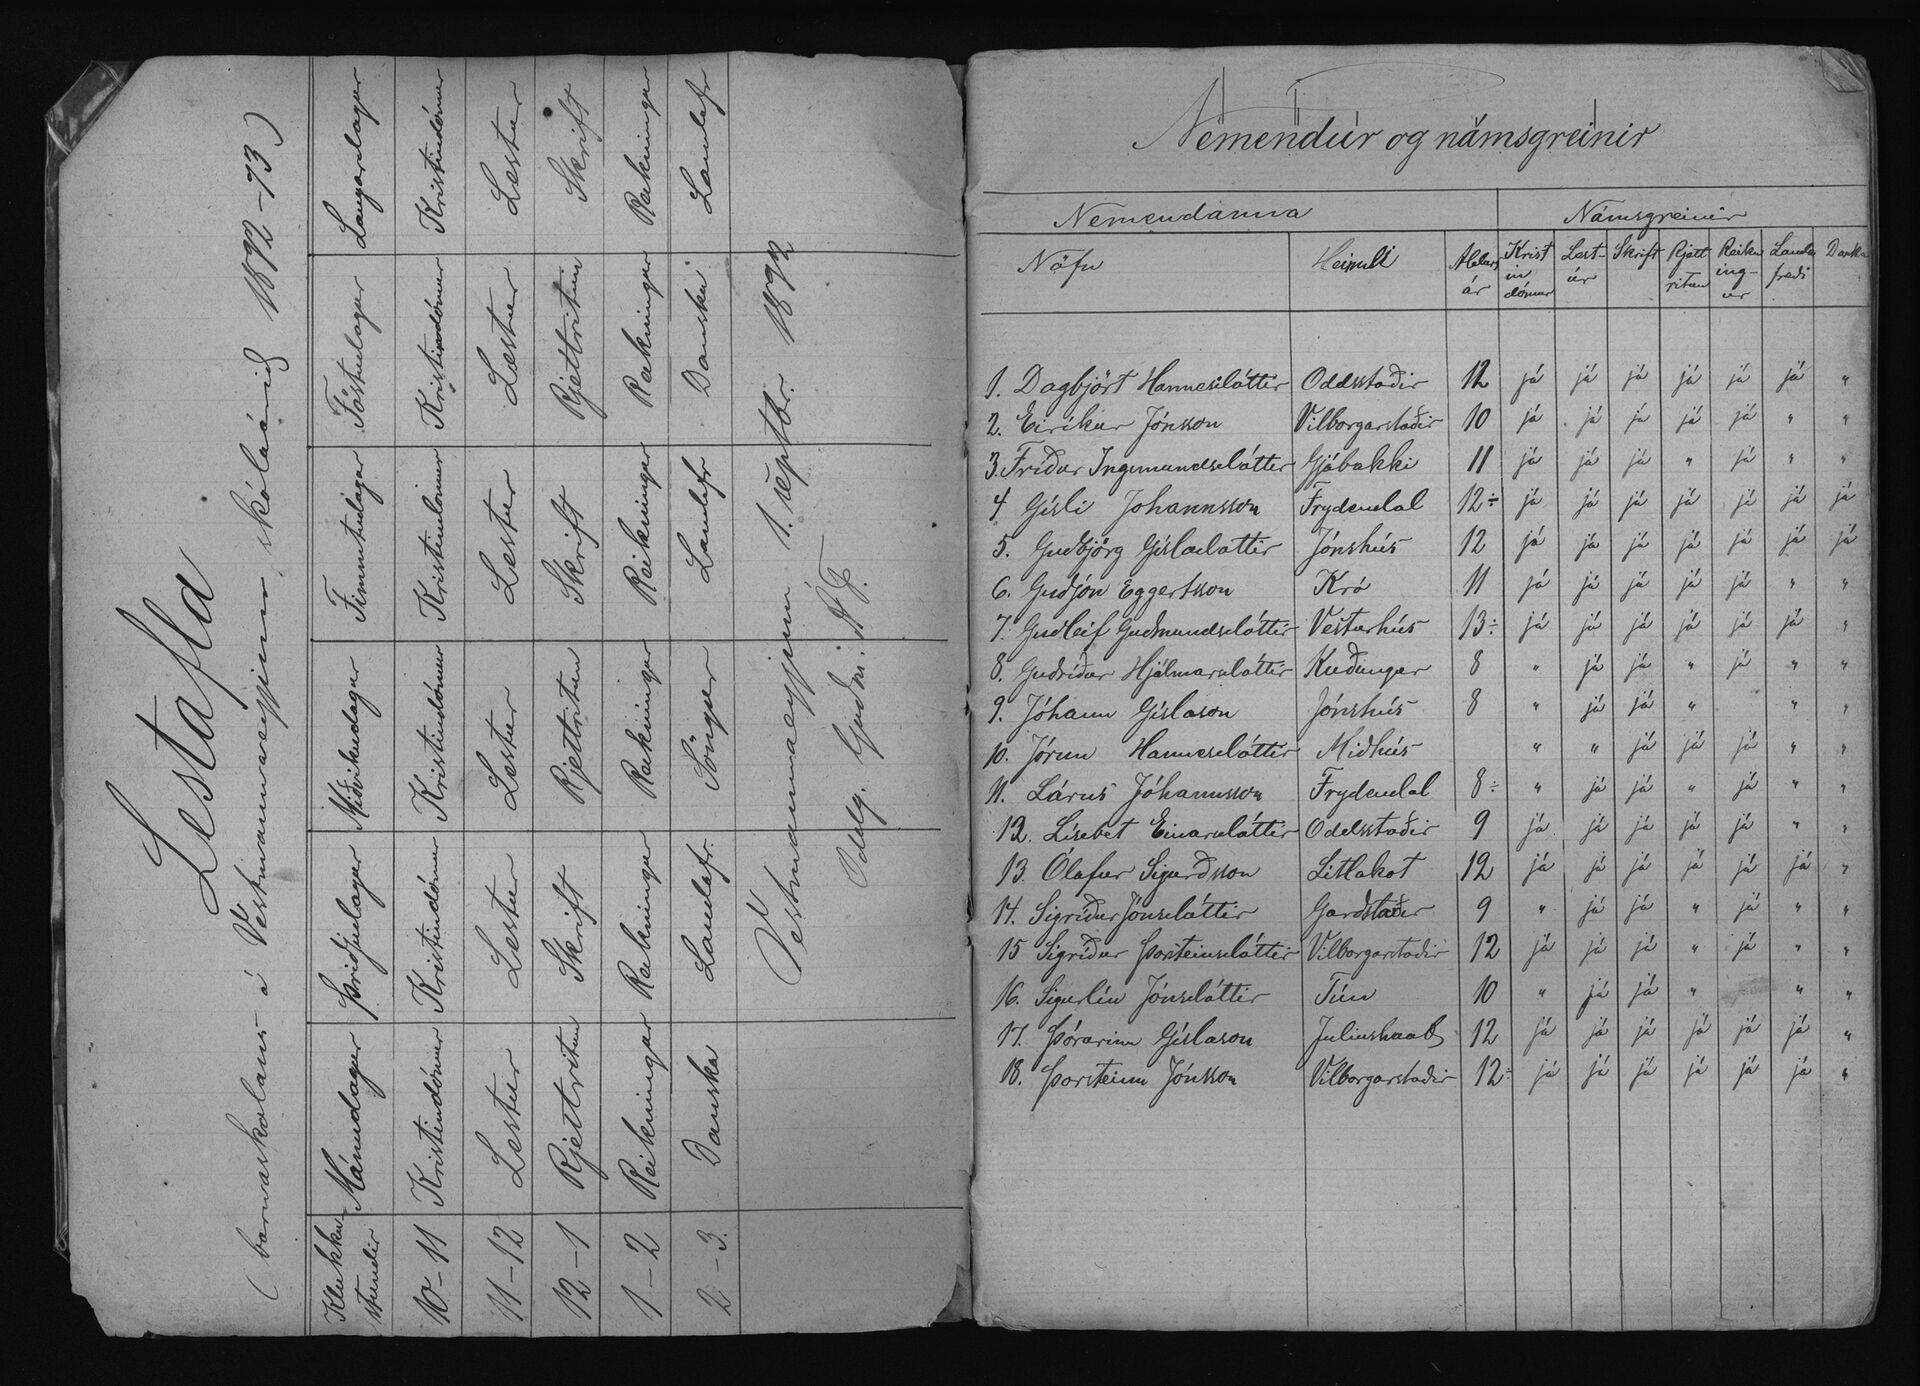 Lestafla
(barnaskolans á Vestmannaeyjum, skólaárið 1892-93)
Klukku stundir Mánudagur Þriðjudagur Miðvikudagur Fimmtudagur Föstudagur Laugardagur
10-11 Kristindómur Kristindómur Kristindómur Kristindómur Kristindómur Kristindómur
11-12 Lestur Lestur Lestur Lestur Lestur Lestur
12-1 Rjettritun Skrift Rjettritun Skrift Rjettritun Skrift
1-2 Reikningur Reikningur Reikningur Reikningur Reikningur Reikningur
2-3. Danska Landafr. Söngur Landafr Danska Landafr
Vestmannaeyjum 1. septbr. 1892
Oddg. Guðm.
Nemendur og námsgreinir
Nemendanna Námsgreinir
Nöfn Heimili Aldurs ár Krist in dómur Lest- ur Skrift Rjett ritun Reikn ing- ur Landa fræði Danska
1. Dagbjört Hannesdóttir Oddsstaðir 12 já já já já já já "
2. Eiríkur Jónsson Vilborgarstaðir 10 já já já já já " "
3. Fríður Ingimundsdóttir Gjábakki 11 já já já " já " "
4 Gísli Johannsson Frydendal 12÷ já já já já já já já
5. Guðbjörg Gísladottir Jónshús 12 já já já já já já já
6. Guðjón Eggertsson Kró 11 já já já já já " "
7. Guðleif Guðmundsdóttir Vesturhús 13÷ já já já já já já "
8. Guðríður Hjálmarsdóttir Kuðungur 8 " já já " já " "
9. Jóhann Gíslason Jónshús 8 " já já " " "
10. Jórun Hannesdóttir Miðhús " " já já já " "
11. Lárus Jóhannsson Frydendal 8÷ " já já " já " "
12. Lísebet Einarsdóttir Oddsstaðir 9 já já já já já " "
13. Ólafur Sigurðsson Litlakot 12 já já já já já já "
14. Sigríður Jónsdóttir Garðstaðir 9 " já já " já " "
15 Sigríður Þorsteinsdóttir Vilborgarstaðir 12 já já já " já " "
16. Sigurlín Jónsdóttir Tún 10 " já já " " "
17. Þórarinn Gíslason Juliushaab 12 já já já já já já "
18. Þorsteinn Jónsson Vilborgarstaðir 12÷ já já já já já já "